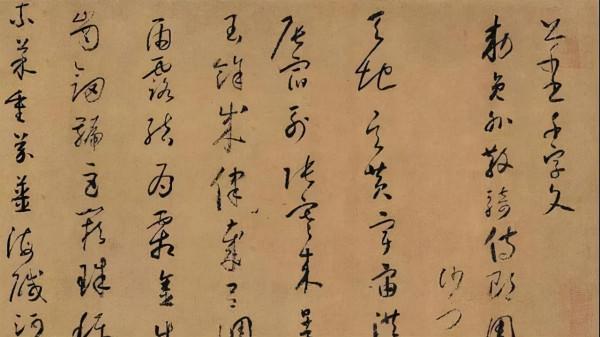 千字文
勅員外散騎侍郎周
沙門
天地玄黃宇宙洪
辰宿列張寒來暑
閏餘成律歲呂調
雨露結爲霜金生
崗劍號巨闕珠稱
柰菜重芥薑海醎河